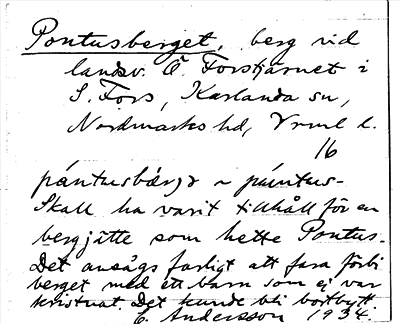 Pontusberget, berg vid
landsv. Ö. Forstjärnet i
S. Fors, Karlanda sn,
Nordmarks hd, Vrml l.
16
pántusbär̡j̡ə ~ púntus-
Skall ha varit tillhåll för en
bergjätte som hette Pontus.
Det ansågs farligt att fara förbi
berget med ett barn som ej var
kristnat. Det kunde bli bortbytt.
E. Andersson 1934.